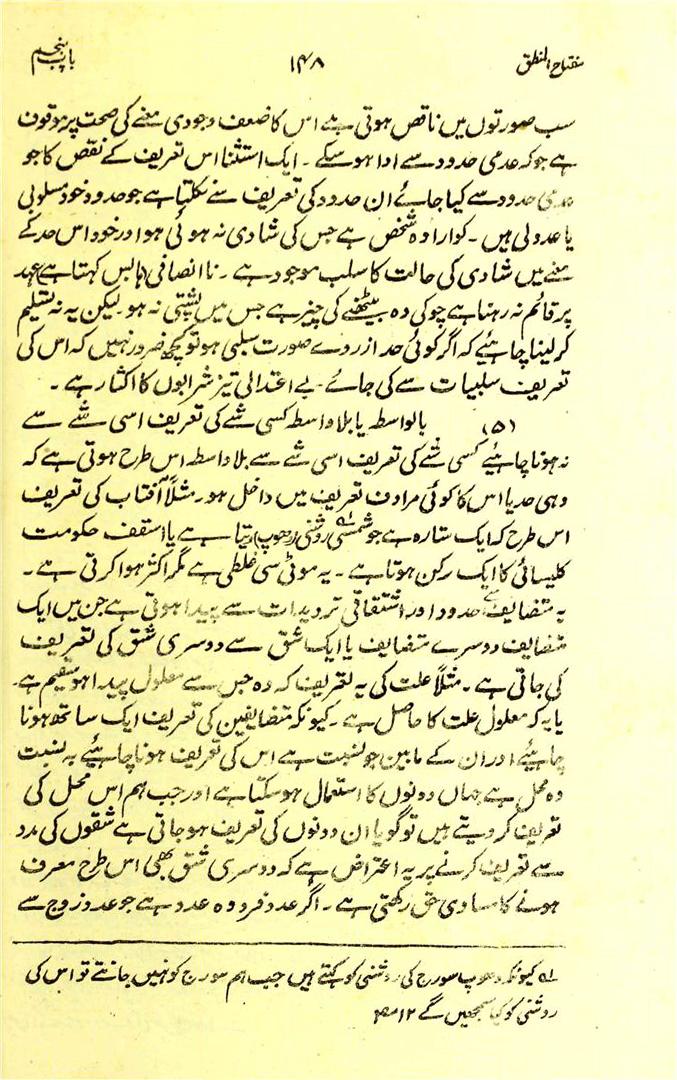 مفتاح المنطق ۱۴۸ باب پنجم
سب صورتوں میں ناقص ہوتی ہے اس کا ضعف وجودی معنے کی صحت پر موقوف
ہے جو کہ عدمی حدود سے ادا ہوسکے ۔ ایک استثنا اس تعریف کے نقص کا جو
عدمی حدود سے کیا جائے ان حدود کی تعریف سے نکلتا ہے جو حدود خود مسلوبی
یا عدولی ہیں ۔ کنوارا وہ شخص ہے جس کی شادی نہ ہوئی ہو اور خود اس حد کے
معنے میں شادی کی حالت کا سلب موجود ہے ۔ ناانصافی ہابس کہتا ہے عہد
پر قائم نہ رہنا ہے چوکی وہ بیٹھنے کی چیز ہے جس میں پشتی نہ ہو ۔ لیکن یہ نہ تسلیم
کرلینا چاہیئے کہ اگر کوئی حد از روے صورت سلبی ہو تو کچھ ضرور نہیں کہ اس کی
تعریف سلبیات سے کی جائے ۔ بے اعتدالی تیز شرابوں کا اکثار ہے ۔
(۵) بالواسطہ یا بلاواسطہ کسی شے کی تعریف اسی شے سے
نہ ہونا چاہیئے کسی شے کی تعریف اسی شے سے بلاواسطہ اس طرح ہوتی ہے کہ
وہی حد یا اس کا کوئی مرادف تعریف میں داخل ہو ۔ مثلاً آفتاب کی تعریف
اس طرح کہ ایک ستارہ ہے جو شمسی روشنی (دھوپ) ۱ دیتا ہے یا اسقف حکومت
کلیسائی کا ایک رکن ہوتا ہے ۔ یہ موٹی سی غلطی ہے مگر اکثر ہوا کرتی ہے ۔
یہ متضایف حدود اور اشتقاقی تردیدات سے پیدا ہوتی ہے جن میں ایک
متضایف دوسرے متضایف یا ایک شق سے دوسری شق کی تعریف
کی جاتی ہے ۔ مثلاً علت کی یہ تعریف کہ وہ جس سے معلول پیدا ہو سقیم ہے ۔
یا یہ کہ معلول علت کا حاصل ہے ۔ کیونکہ متضایفین کی تعریف ایک ساتھ ہونا
چاہیئے اور ان کے مابین جو نسبت ہے اس کی تعریف ہونا چاہیئے یہ نسبت
وہ محل ہے جہاں دونوں کا استعمال ہوسکتا ہے اور جب ہم اس محل کی
تعریف کر دیتے ہیں تو گویا ان دونوں کی تعریف ہو جاتی ہے شقوں کی مدد
سے تعریف کرنے پر یہ اعتراض ہے کہ دوسری شق بھی اس طرح معرف
ہونے کا مساوی حق رکھتی ہے ۔ اگر عدد فرد وہ عدد ہے جو عدد زوج سے
۱ کیونکہ دھوپ سورج کی روشنی کو کہتے ہیں جب ہم سورج کو نہیں جانتے تو اس کی
روشنی کو کیا سمجھیں گے ۱۲